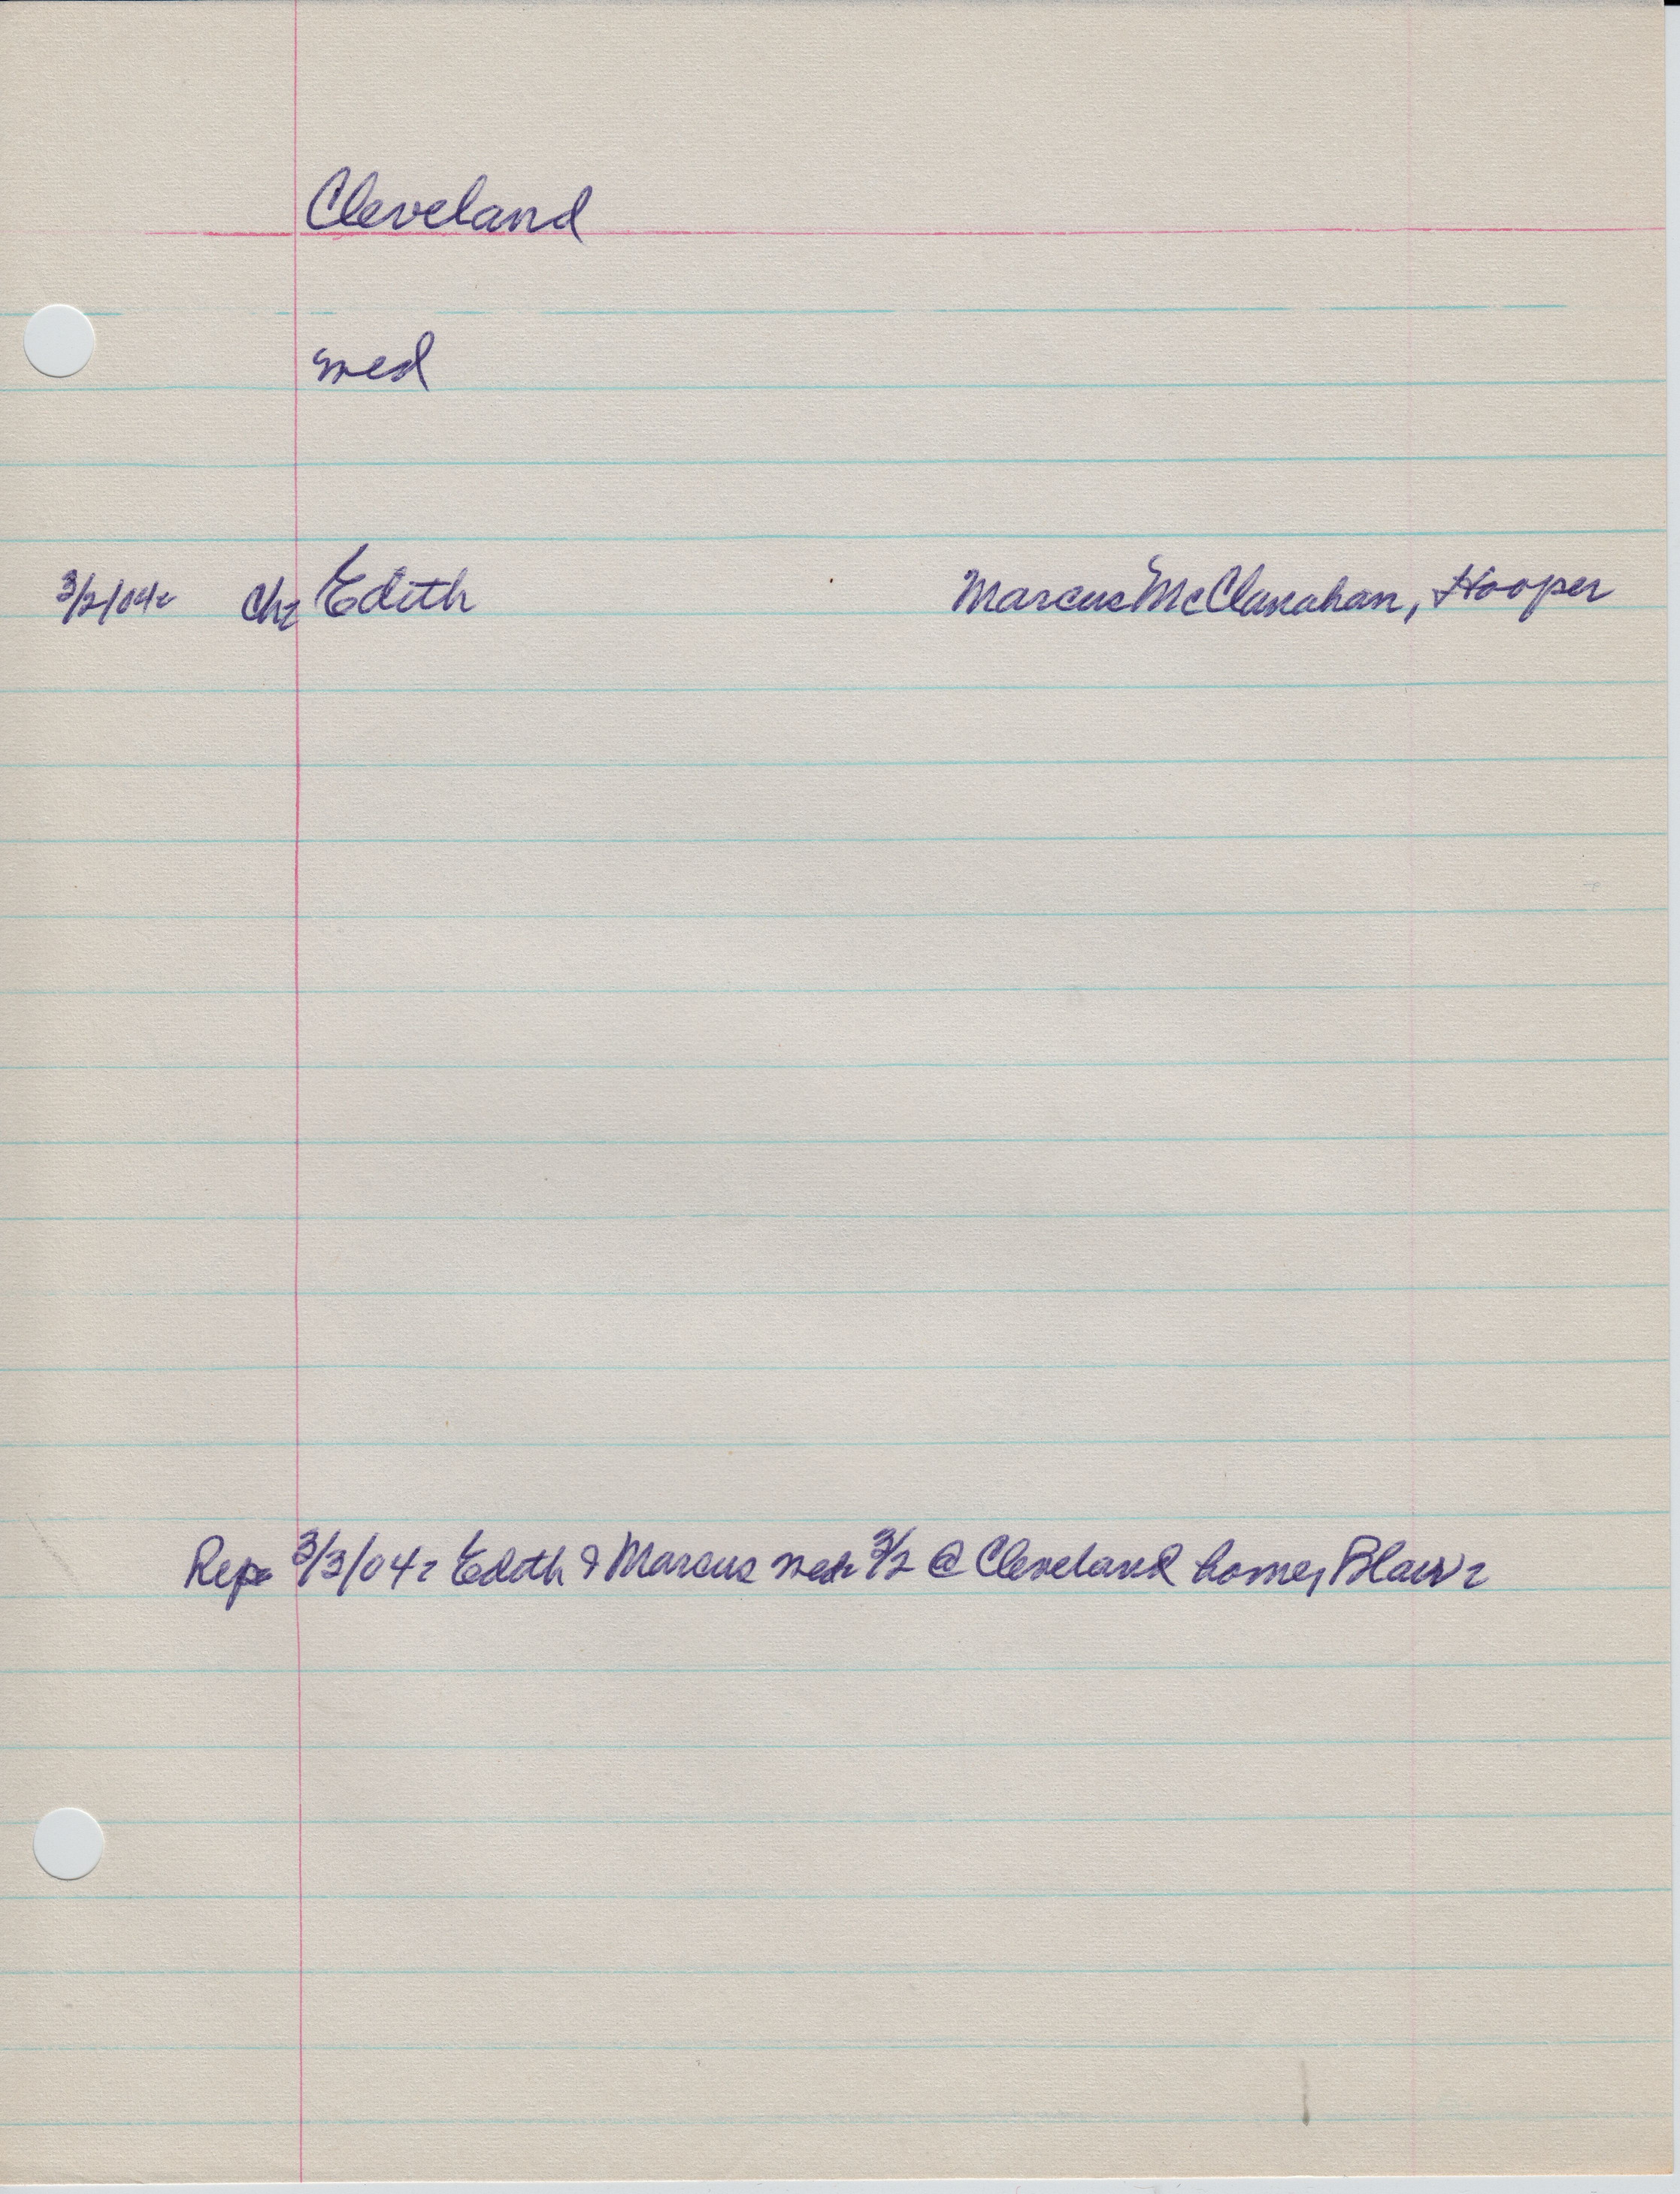 Cleveland
med
3/2/04. Ch. Edith Marcus McClanahan, Hooper
Rep. 3/3/04. Edith & Marcus med. 3/2 @ Cleveland home, Blair.